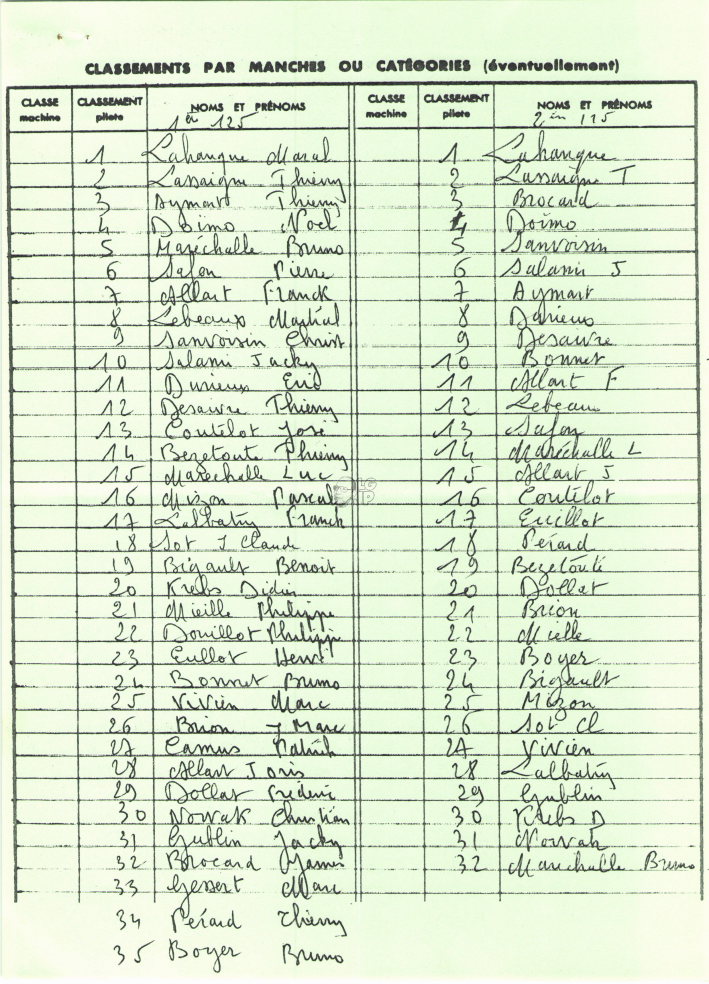 CLASSEMENTS PAR MANCHES OU CATÉGORIES (éventuellement)
CLASSE machine CLASSEMENT pilote NOMS ET PRÉNOMS
125
1 Lahangue
2 Lassaigne Thierry
3 Aymart Thierry
4 Doimo Noel
5 Maréchalle Bruno
6 Safon Pierre
7 Allart Franck
8 Lebeaux Martial
9 Sanvoisin Christ
10 Salami Jacky
11 Durieux Eric
12 Desaivre Thierry
13 Coutelot José
14 Bezetoute Thierry
15 Maréchalle Luc
16 Mizon Pascal
17 Lalbatry Franck
18 Sot J Claude
19 Bigault Benoit
20 Krebs Didier
21 Mieille Philippe
22 Douillot Philippe
23 Euillot Henri
24 Bonnet Bruno
25 Vivien Marc
26 Brion J Marc
27 Camus Patrick
28 Allart Joris
29 Dollat Frédéric
30 Nowak Christian
31 Gublin Jacky
32 Brocard Yannis
33 Gessert Marc
34 Pérard Thierry
35 Boyer Bruno
CLASSE machine CLASSEMENT pilote NOMS ET PRÉNOMS
1 Lahangue
2 Lassaigne T
3 Brocard
4 Doïmo
5 Sanvoisin
6 Salami J
7 Aymart
8 Durieux
9 Desaivre
10 Bonnet
11 Allart F
12 Lebeaux
13 Safon
14 Maréchalle L
15 Allart J
16 Coutelot
17 Euillot
18 Pérard
19 Bezetouté
20 Dollat
21 Brion
22 Mielle
23 Boyer
24 Bigault
25 Mizon
26 Sot Cl
27 Vivien
28 Lalbatry
29 Gublin
30 Krebs D
31 Norvak
32 Marechalle Bruno